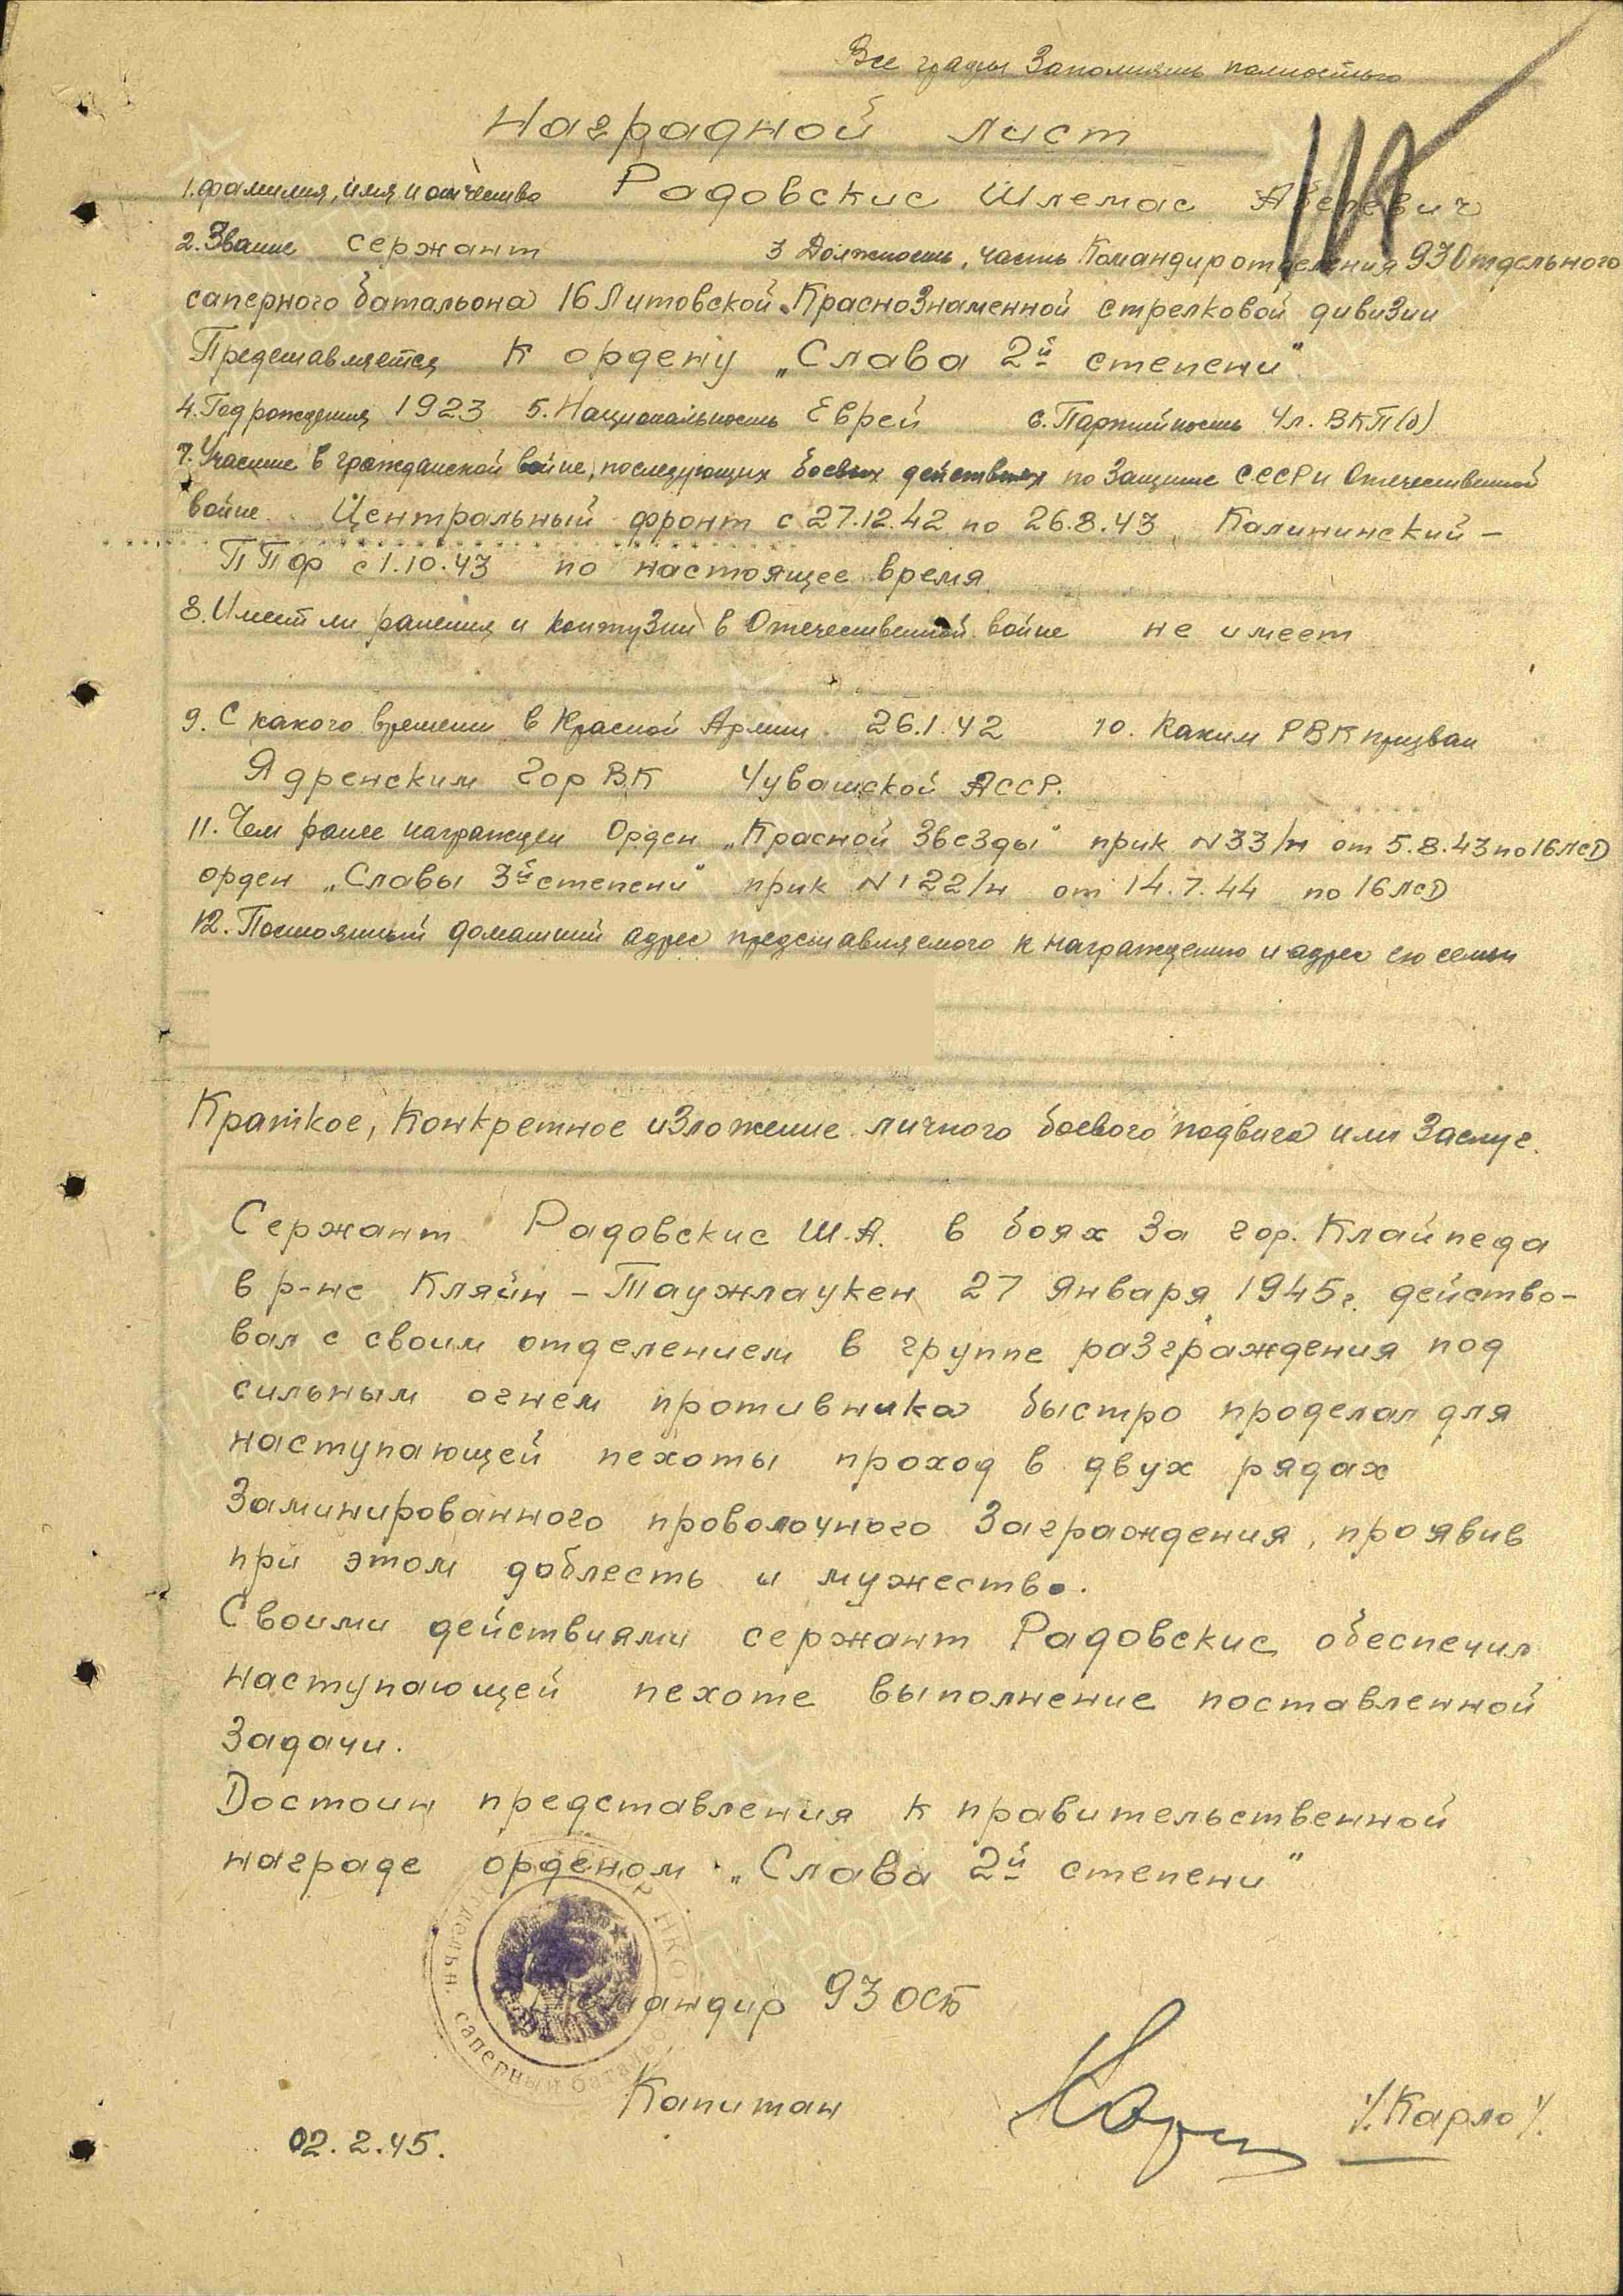 Все графы Заполнять полностью
Наградной лист
1. фамилия, имя и отчество Радовскис Шлемас Абелевич
2. Звание сержант 3 Должность, часть Командир отделения 93 Отдельного
саперного батальона 16 Литовской Краснознаменной стрелковой дивизии
Представляется к ордену „Слава 2й степени"
4. Год рождения 1923 5. Национальность Еврей 6. Партийность Чл. ВКП(б)
7. Участие в гражданской войне, последующих боевых действиях по защите СССР и Отечественной
войне. Центральный фронт с 27.12.42 по 26.8.43 Калининский –
ППФ с 1.10.43 по настоящее время
8. Имеет ли ранения и контузии в Отечественной войне не имеет
9. С какого времени в Красной Армии 26.1.42 10. Каким РВК призван
Ядренским Гор ВК Чувашской АССР.
11. Чем ранее награжден Орден „Красной Звезды" прик N 33/н от 5.8.43 по 16 лсД
орден „Славы 3й степени" прик N 122/н от 14.7.44 по 16 лсД
12. Постоянный домашний адрес представляемого к награждению и адрес его семьи
Краткое, Конкретное изложение личного боевого подвига или Заслуг.
Сержант Радовскис Ш.А. в боях за гор. Клайпеда
в р-не Кляйн – Таужлаукен 27 Января 1945г. действо-
вал с своим отделением в группе разграждения под
сильным огнем противника быстро проделал для
наступающей пехоты проход в двух рядах
Заминированного проволочного Заграждения, проявив
при этом доблесть и мужество.
Своими действиями сержант Радовскис обеспечил
наступающей пехоте выполнение поставленной
Задачи.
Достоин представления к правительственной
награде орденом „Слава 2й степени"
Командир 93 ОСБ
Капитан /.Карло/.
02.2.45.